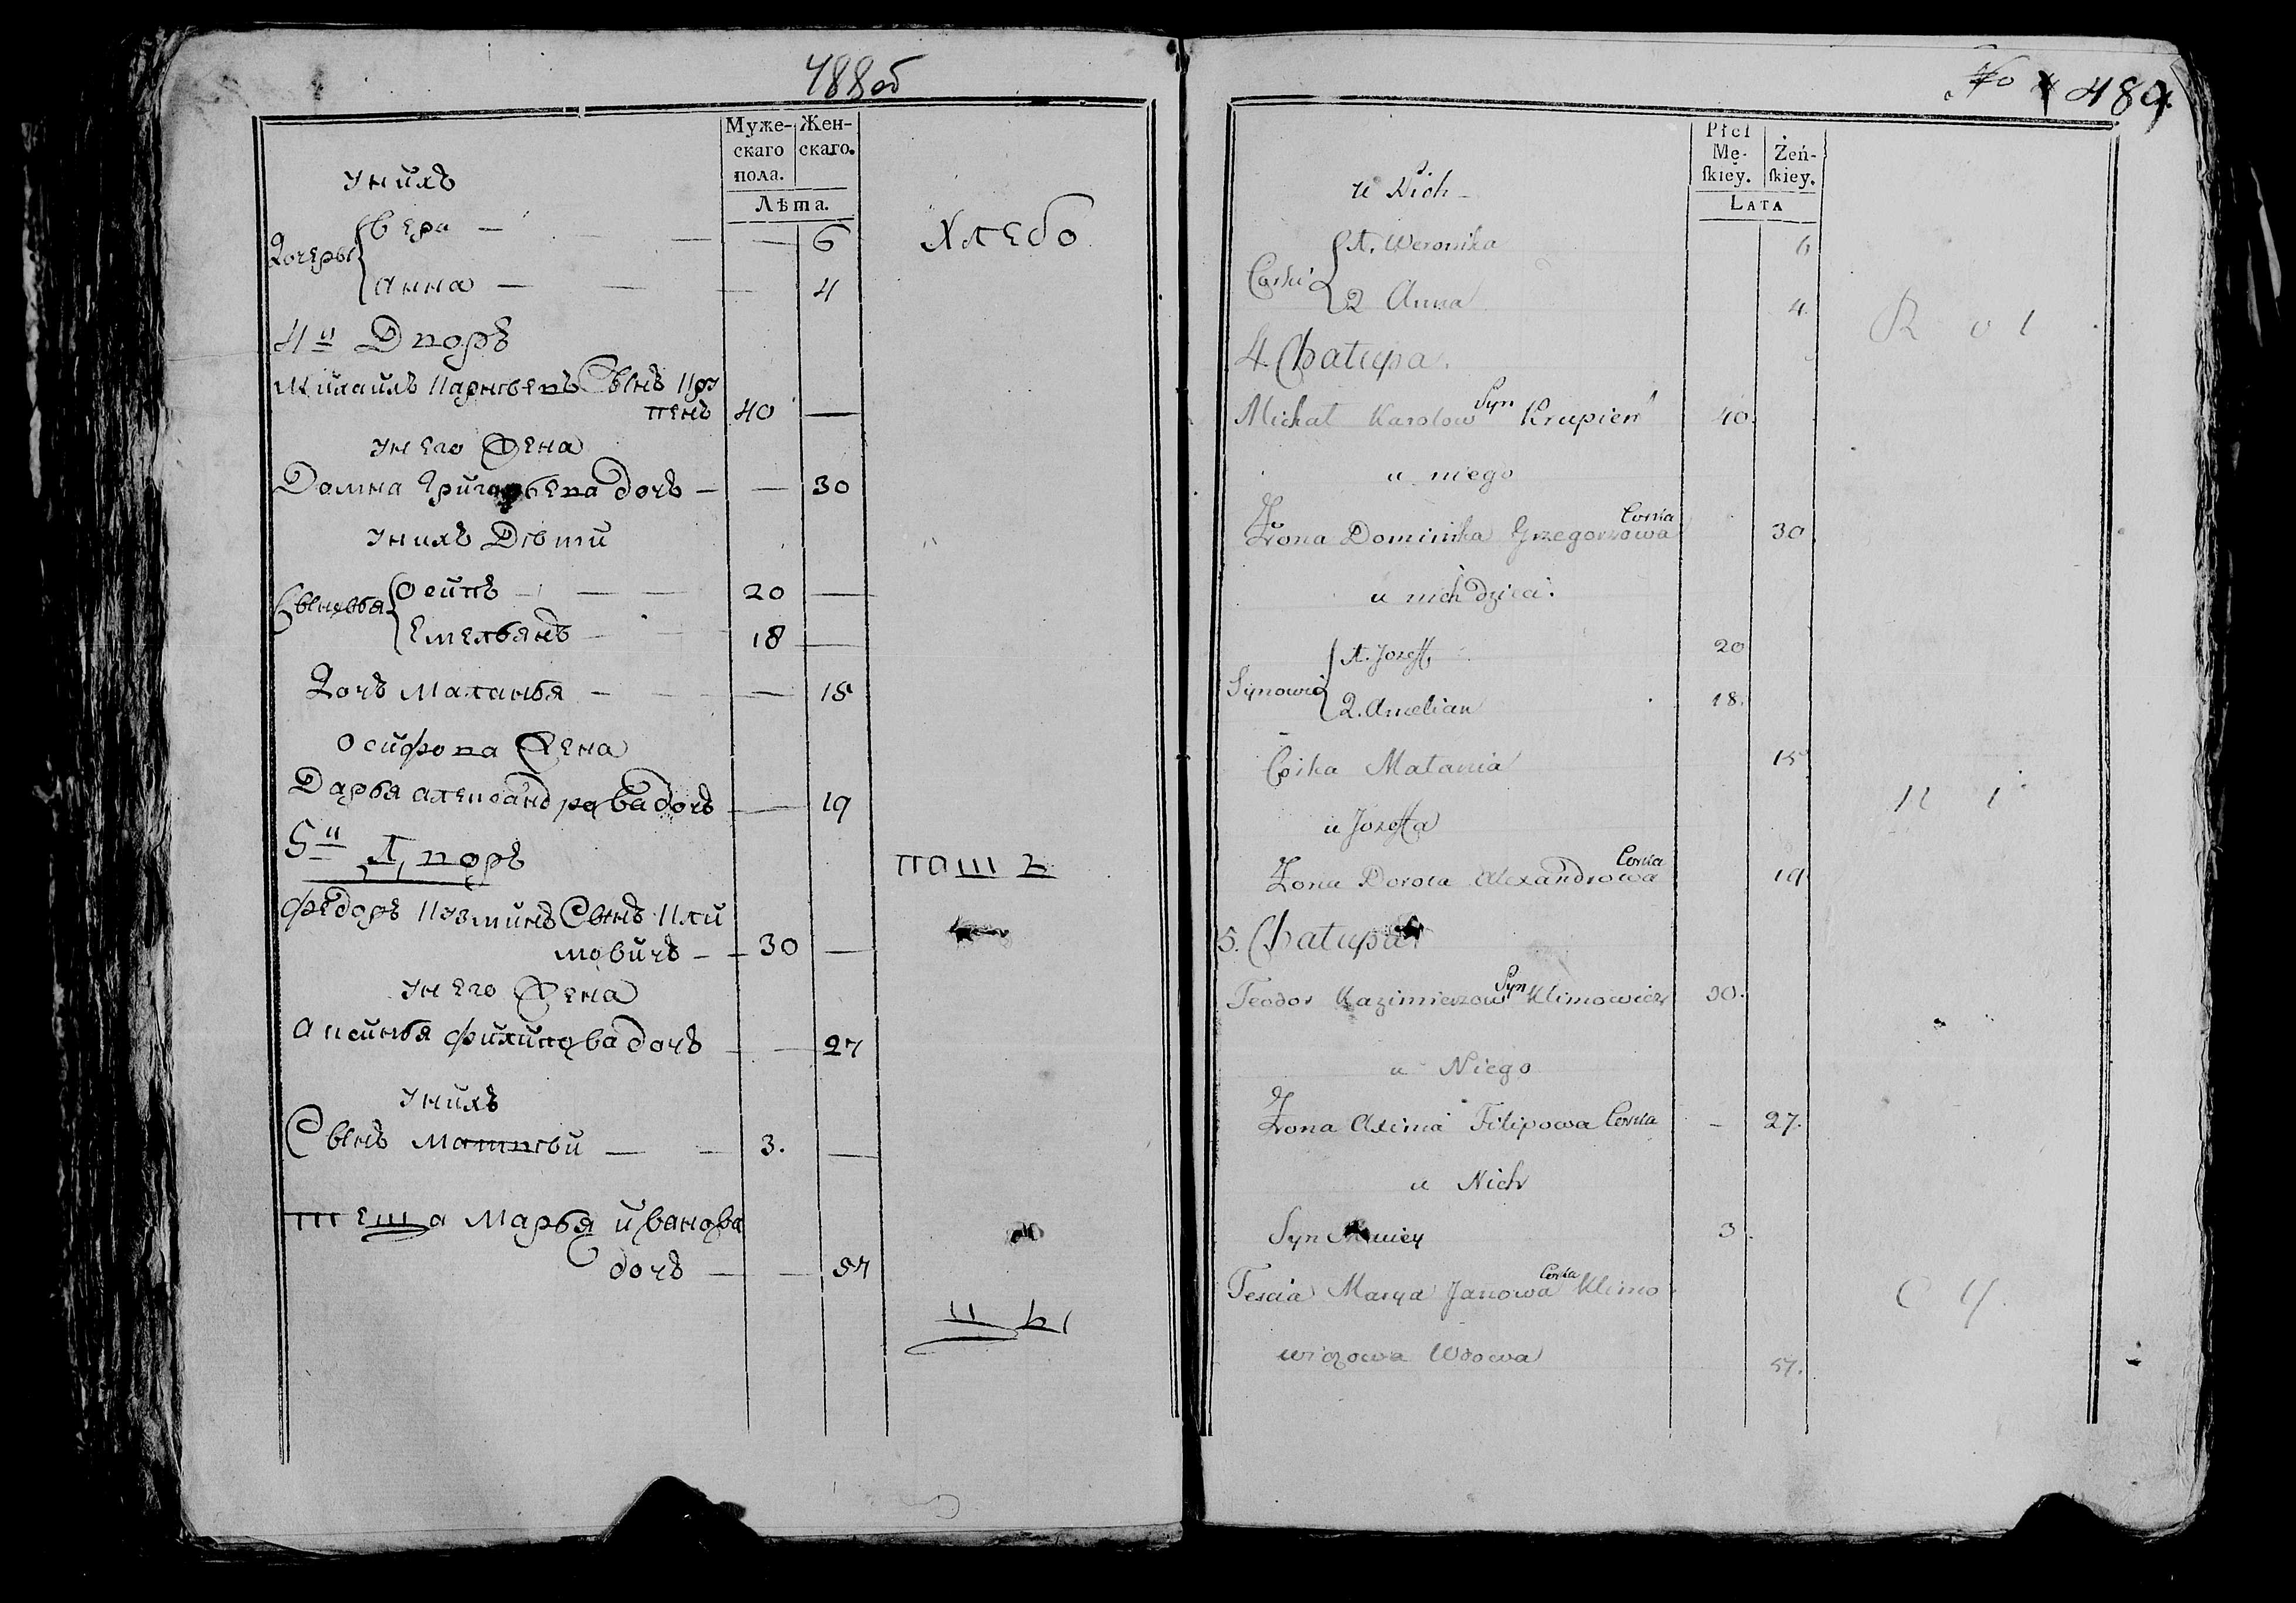 488 об
Муже-
скаго
пола.
Жен-
скаго.
Лѣта.
у нихъ
Дочеры
Вера — 6
Анна — 4
Хлебо
4й Дворъ
Михаилъ Карнѣевъ Сынъ Кру
пенъ 40 —
у него Жена
Домна Григорьева дочь — — 30
у нихъ Дѣти
Сыновья
Осипъ — 20 —
Емельянъ — 18 —
Дочь Маланья — — 15
Осифова Жена
Дарья Александрова дочь — 19
5й Дворъ
паш ъ
Федоръ Кузминъ Сынъ Кли
мовичъ — 30 —
у него Жена
Аксинья Филипова дочь — — 27
у нихъ
Сынъ Матвѣй — 3. —
теща Марья Иванова
дочь — — 57
ц ы
No 489
Płci
Mę-
ſkiey.
Żeń-
ſkiey.
LATA
u Nich
Corki
1. Weronika 6
2 Anna 4
R o l
4. Chałupa.
Michał Karolow Syn Krupień 40.
u niego
Żona Dominika Grzegorzowa Corka 30
u nich dzieci.
Synowie
1. Jozeff, 20
2. Amelian 18.
Corka Matania 15
n i
u Jozeffa
Żona Dorota Alexandrowa Corka 19
5. Chałupa.
Teodor Kazimierzow Syn Klimowicz 30.
u Niego
Żona Axinia Filipowa Corka — 27.
u Nich
Syn 3.
Tescia Marya Janowa Corka Klimo
c y.
wiczowa Wdowa 57.